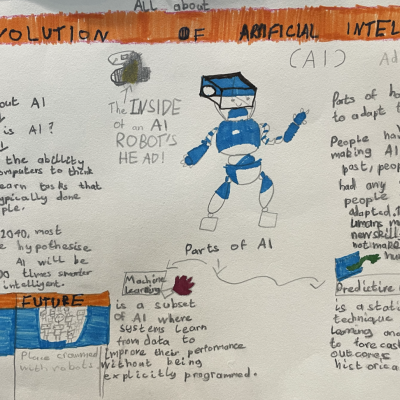 All about
VOLUTION OF ARIFICIAL INTEL
(AI) Ad
The INSIDE
of an AI
ROBOT'S
HEAD!
out AI
is AI?
the abillity
omputers to think
earn tasks that
ypically done
ple.
2040, most
e hypothesise
AI will be
00 times smarter
intelligent.
FUTURE
Place crammed
with robots.
Parts of AI
Machine
Learning
is a subset
of AI where
systems learn
from data to
improve their performance
without being
explicitly programmed.
Parts of
to adapt t
People hav
making AI
past, peop
had any
people
adapted,
humans m
new skill
not make
Predictive
is a stati
technique
learning and
to forecas
outcomes
historica